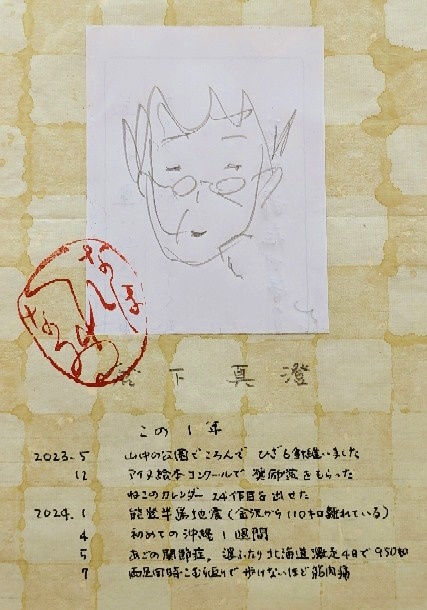 宮下真澄
この1年
2023.5 山中の公園でころんで ひざ6針縫いました
12 アイヌ絵本コンクールで 奨励賞をもらった
ねこのカレンダー 24作目を出せた
2024.1 能登半島地震(金沢から110キロ離れている)
4 初めての沖縄1週間
5 あごの関節症,
北海道
足4日で950
7 両足同時こむら返りで歩けないほど筋肉痛